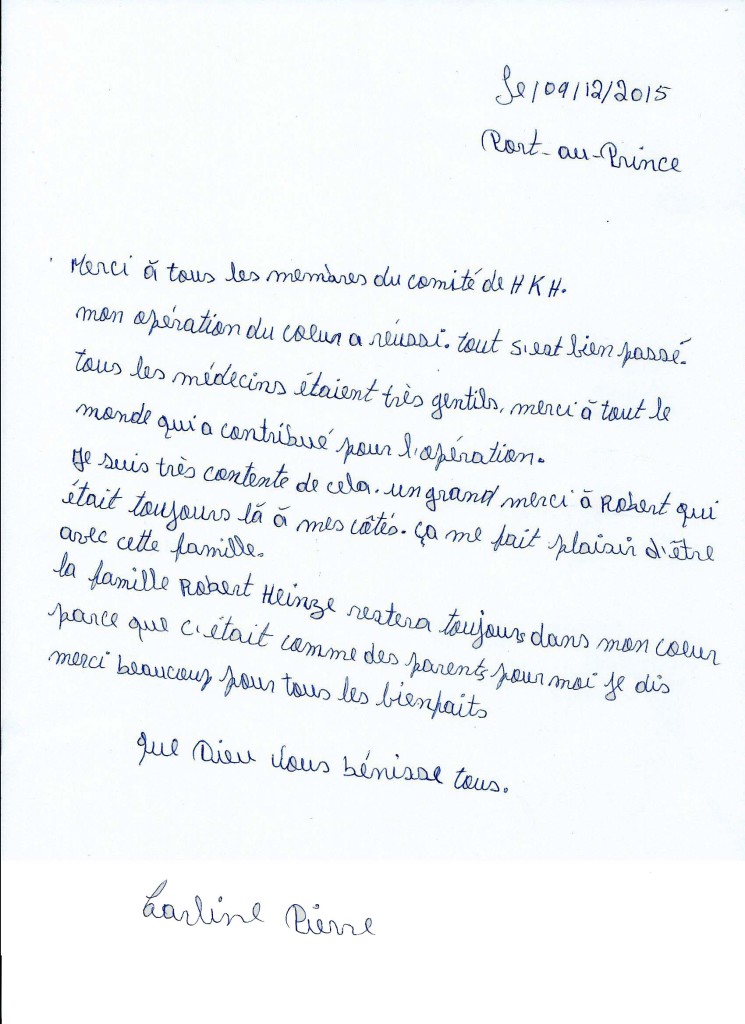 Le/09/12/2015
Port-au-Prince
Merci à tous les membres du comité de HKH.
mon opération du coeur a réussi. tout s'est bien passé.
tous les médecins étaient très gentils, merci à tout le
monde qui a contribué pour l'opération.
Je suis très contente de cela. un grand merci à Robert qui
était toujours là à mes côtés. ça me fait plaisir d'être
avec cette famille.
la famille Robert Heinze restera toujours dans mon coeur
parce que c'était comme des parents pour moi je dis
merci beaucoup pour tous les bienfaits
que Dieu vous bénisse tous.
Carline Pierre